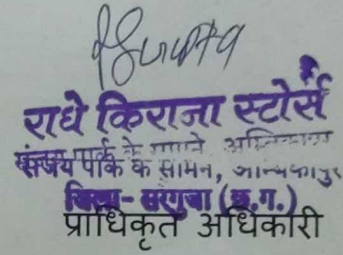 राधे किराना स्टोर्स
संजय पार्क के सामने, अम्बिकापुर
जिला - सरगुजा (छ.ग.)
प्राधिकृत अधिकारी